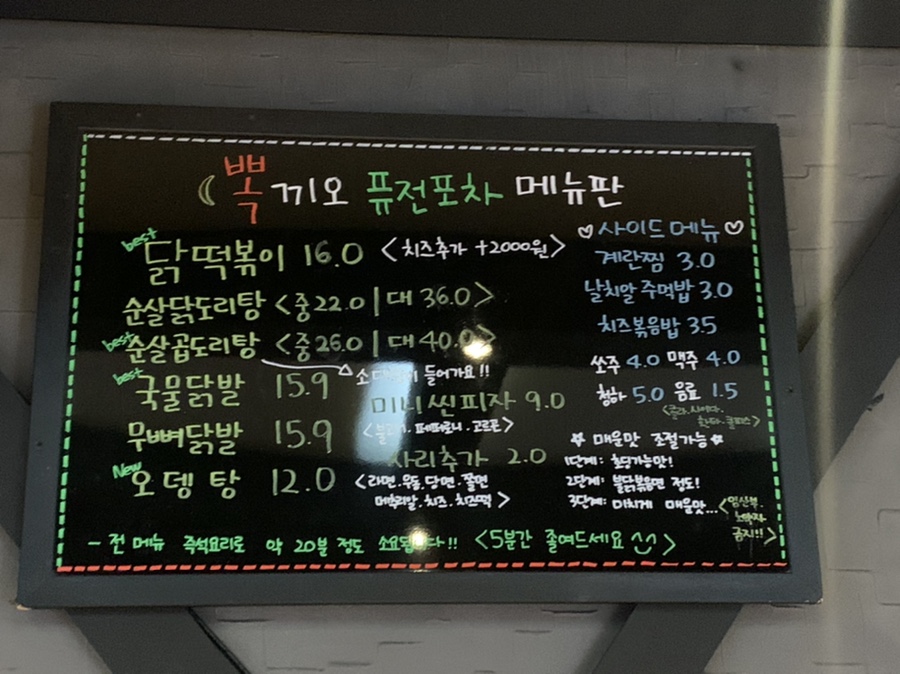 뽁끼오 퓨전포차 메뉴판
best 닭떡볶이 16.0 <치즈추가 +2000원>
순살닭도리탕 <중 22.0 | 대 36.0>
best 순살곱도리탕 <중 26.0 | 대 40.0>
들어가요!!
best 국물닭발 15.9
무뼈닭발 15.9
New 오뎅탕 12.0
미니씬피자 9.0
페퍼로니. 고르곤>
사리추가 2.0
<라면.우동.당면.쫄면
메추리알.치즈.치즈떡>
♡사이드메뉴♡
계란찜 3.0
날치알 주먹밥 3.0
치즈볶음밥 3.5
쏘주 4.0 맥주 4.0
청하 5.0 음료 1.5
<콜라.사이다.
환타.쿨피스>
☆ 매운맛 조절가능 ☆
1단계: 초딩가능맛!
2단계: 불닭볶음면 정도!
3단계: 미치게 매운맛...<임산부.
노약자
금지!!>
- 전 메뉴 즉석요리로 약 20분 정도 소요됩니다!! <5분간 졸여드세요>